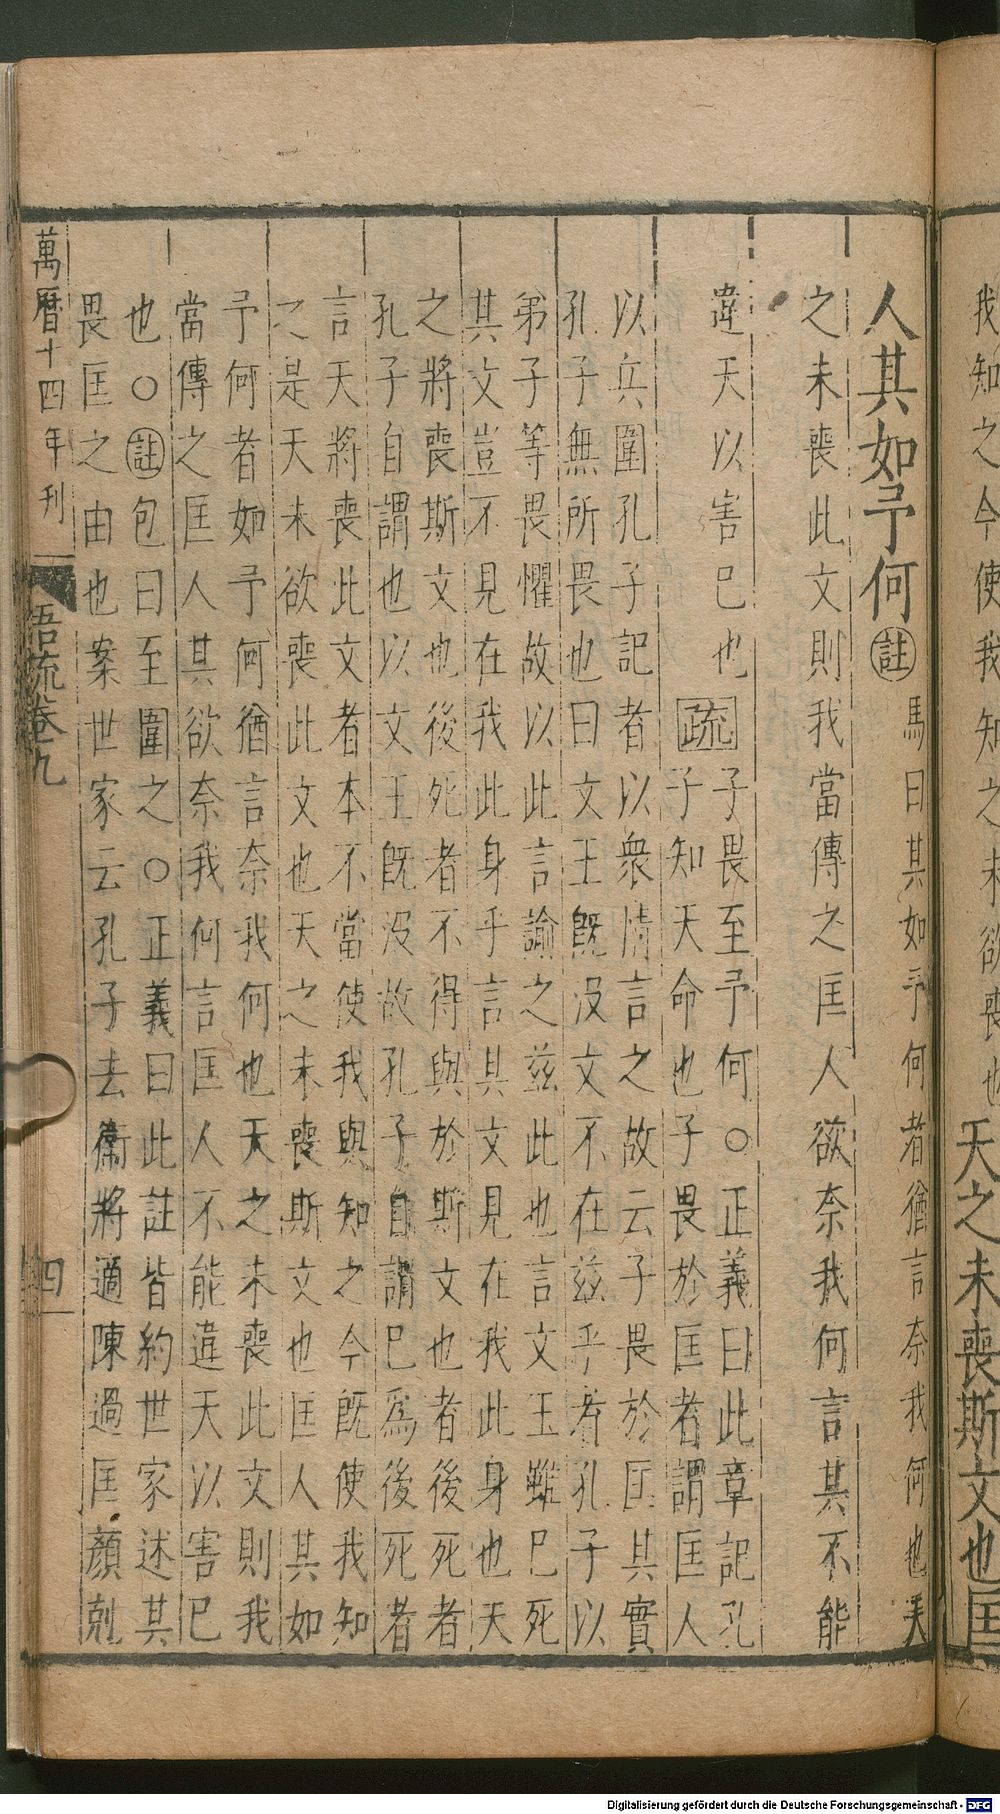 我知之今使我知之未欲喪也天之未喪斯文也匡
人其如予何註馬曰其如予何者猶言奈我何也天
之未喪此文則我當傳之匡人欲奈我何言其不能
違天以害巳也
疏子畏至予何○正義曰此章記孔
子知天命也子畏於匡者謂匡人
以兵圍孔子記者以衆情言之故云子畏於匡其實
孔子無所畏也曰文王旣没文不在兹乎者孔子以
弟子等畏懼故以此言諭之兹此也言文王雖巳死
其文豈不見在我此身乎言其文見在我此身也天
之將喪斯文也後死者不得與於斯文也者後死者
孔子自謂也以文王旣没故孔子自謂巳爲後死者
言天將喪此文者本不當使我與知之今旣使我知
之是天未欲喪此文也天之未喪斯文也匡人其如
予何者如予何猶言奈我何也天之未喪此文則我
當傳之匡人其欲奈我何言匡人不能違天以害巳
也○註包曰至圍之○正義曰此註皆約世家述其
畏匡之由也案世家云孔子去衞將適陳過匡顏剋
萬曆十四年刊
語疏卷九
四
Digitalisierung gefördert durch die Deutsche Forschungsgemeinschaft - DFG